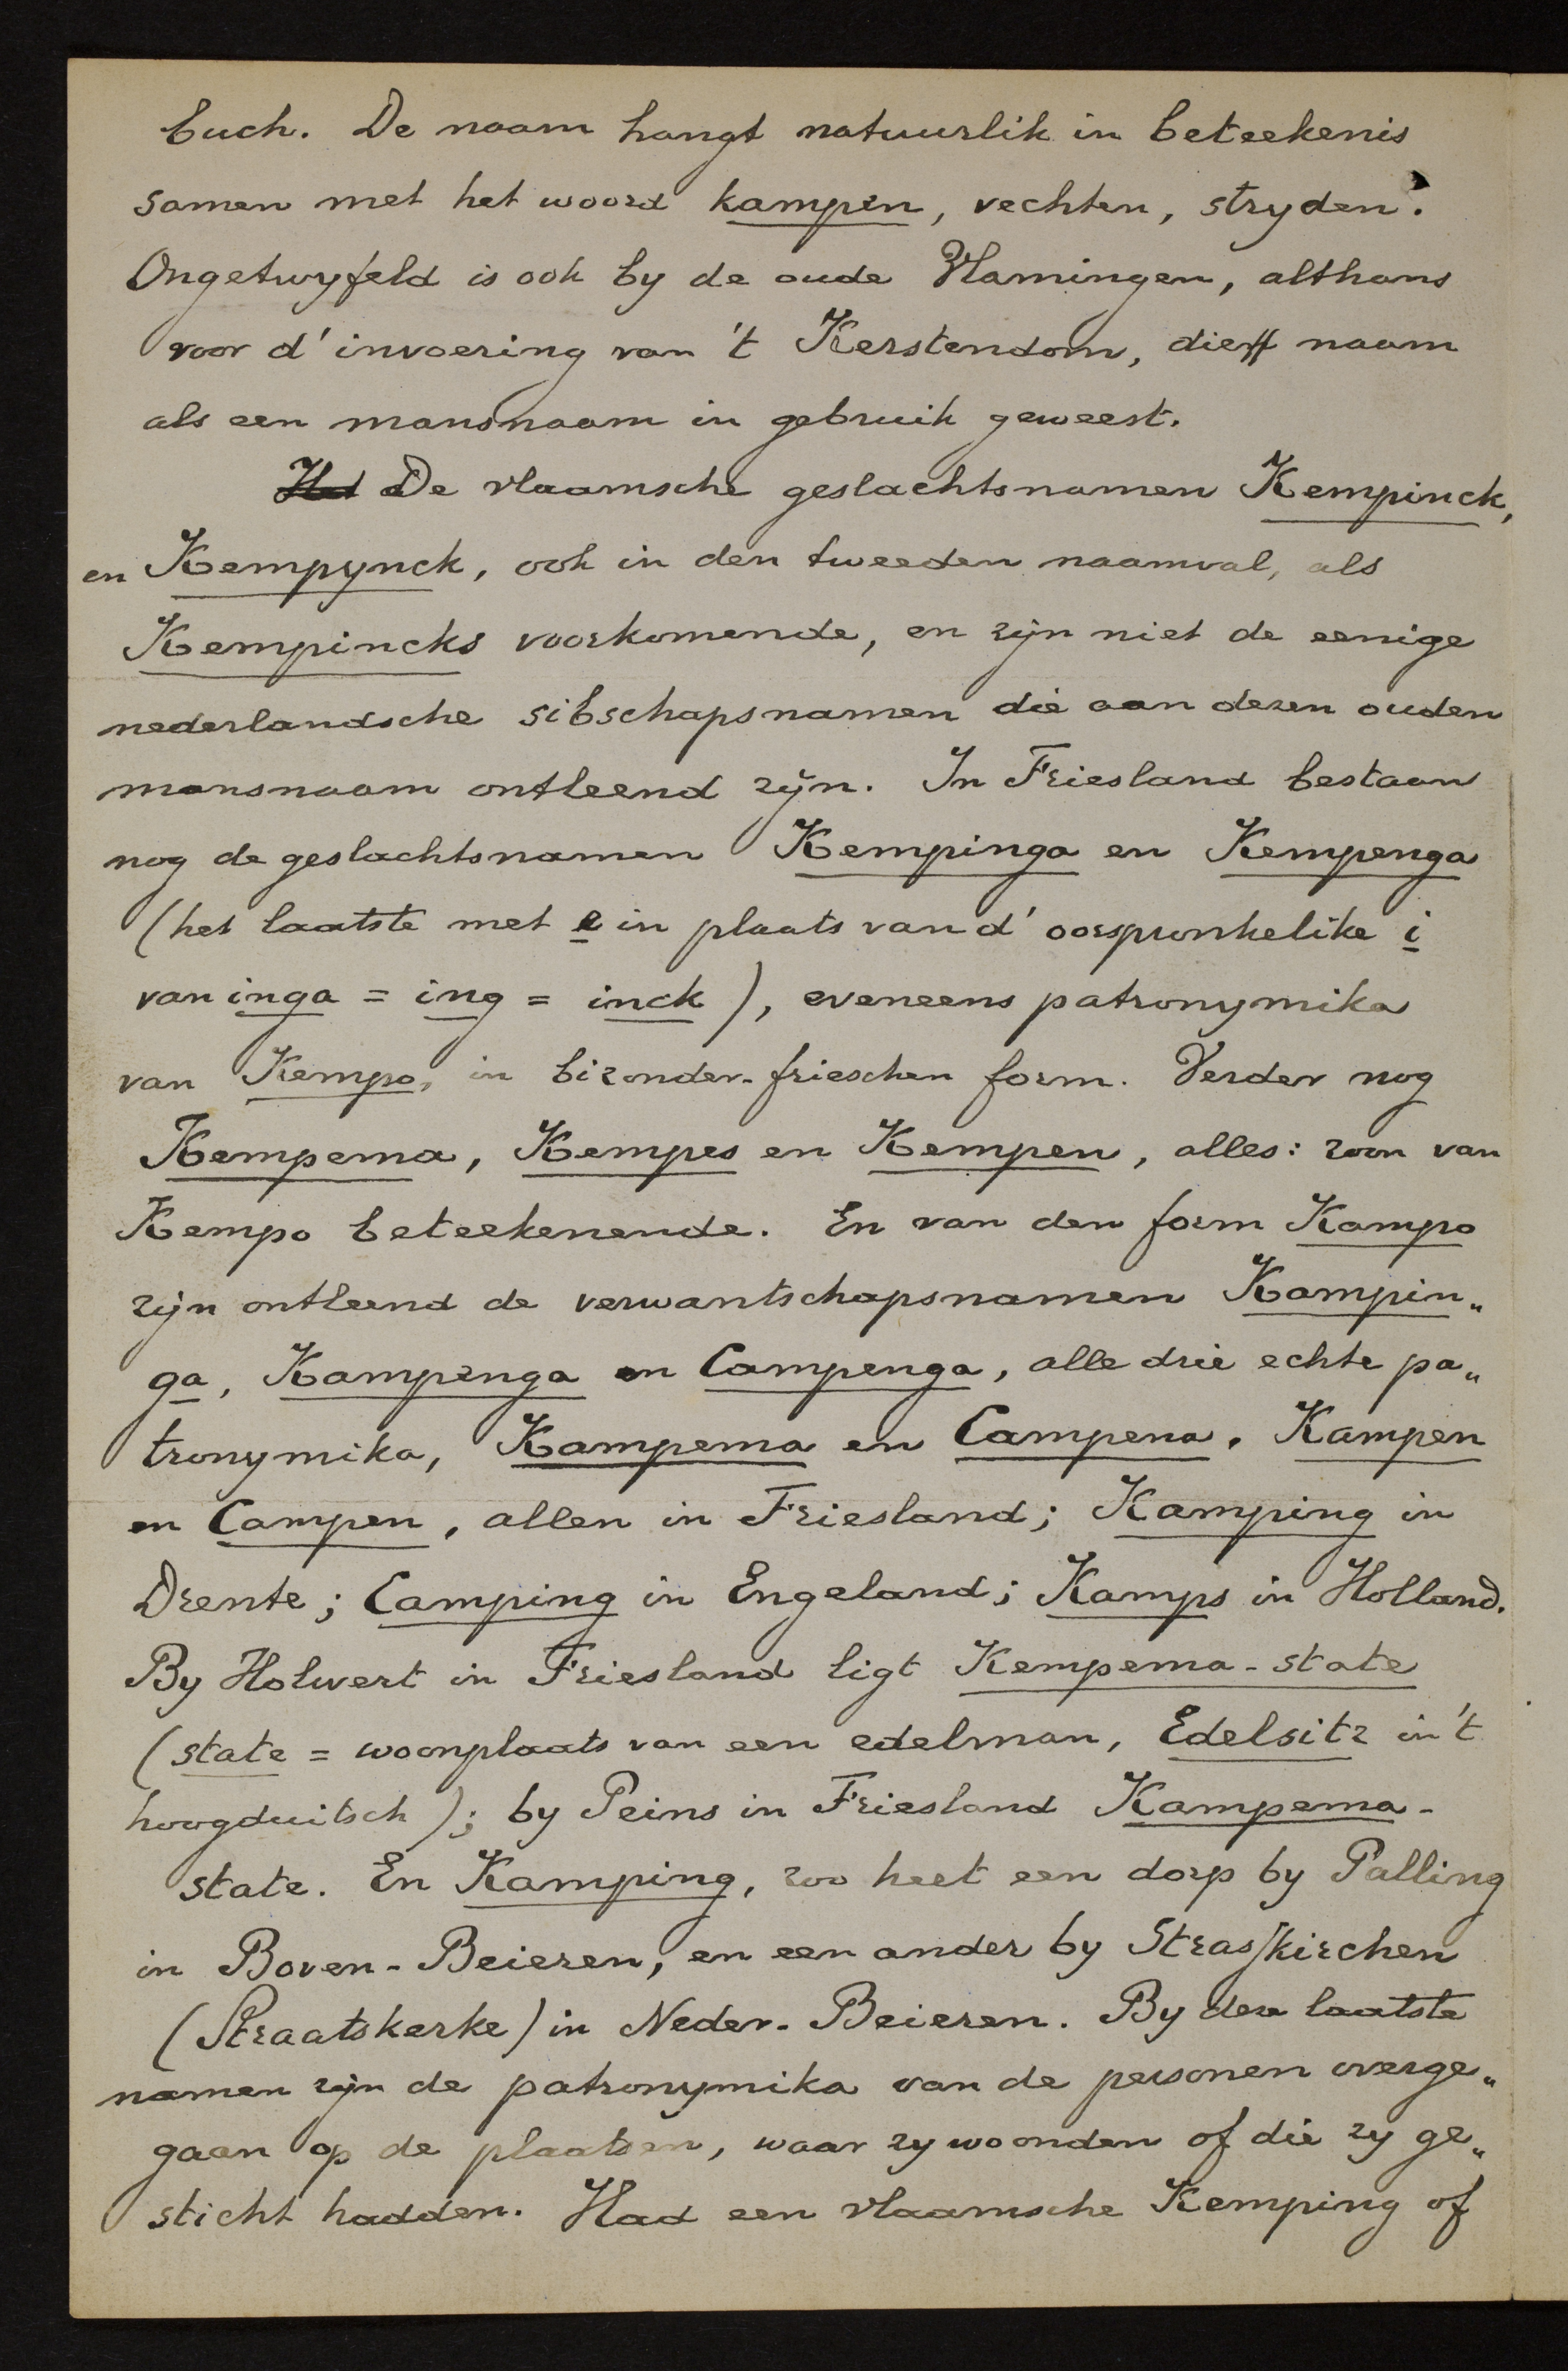 buch. De naam hangt natuurlik in beteekenis
samen met het woord kampen, vechten, stryden.
Ongetwyfeld is ook by de oude Vlamingen, althans
voor d' invoering van 't Kerstendom, die naam
als een mansnaam in gebruik geweest.
Het De vlaamsche geslachtsnamen Kempinck,
en Kempynck, ook in den tweeden naamval, als
Kempincks voorkomende, en zijn niet de eenige
nederlandsche sibschapsnamen die aan dezen ouden
mansnaam ontleend zijn. In Friesland bestaan
nog de geslachtsnamen Kempinga en Kempenga
(het laatste met e in plaats van d' oorspronkelike i
van inga = ing = inck), eveneens patronymika
van Kempo, in bizonder-frieschen form. Verder nog
Kempema, Kempes en Kempen, alles: zoon van
Kempo beteekenende. En van den form Kampo
zijn ontleend de verwantschapsnamen Kampin„
ga, Kampenga en Campenga, alle drie echte pa„
tronymika, Kampema en Campena, Kampen
en Campen, allen in Friesland; Kamping in
Drente; Camping in Engeland; Kamps in Holland.
By Holwert in Friesland ligt Kempema-state
(state = woonplaats van een edelman, Edelsitz in 't
hoogduitsch); by Peins in Friesland Kampema-
state. En Kamping, zoo heet een dorp by Palling
in Boven-Beieren, en een ander by Strasskirchen
(Straatskerke) in Neder-Beieren. By deze laatste
namen zijn de patronymika van de personen overge„
gaan op de plaatsen, waar zy woonden of die zy ge„
sticht hadden. Had een vlaamsche Kemping of